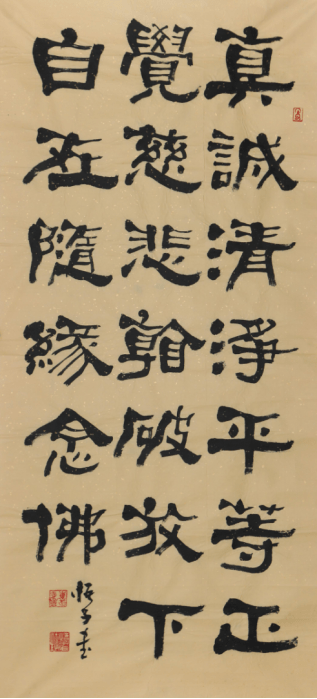 真誠清淨平等正
覺慈悲看破放下
自在隨緣念佛